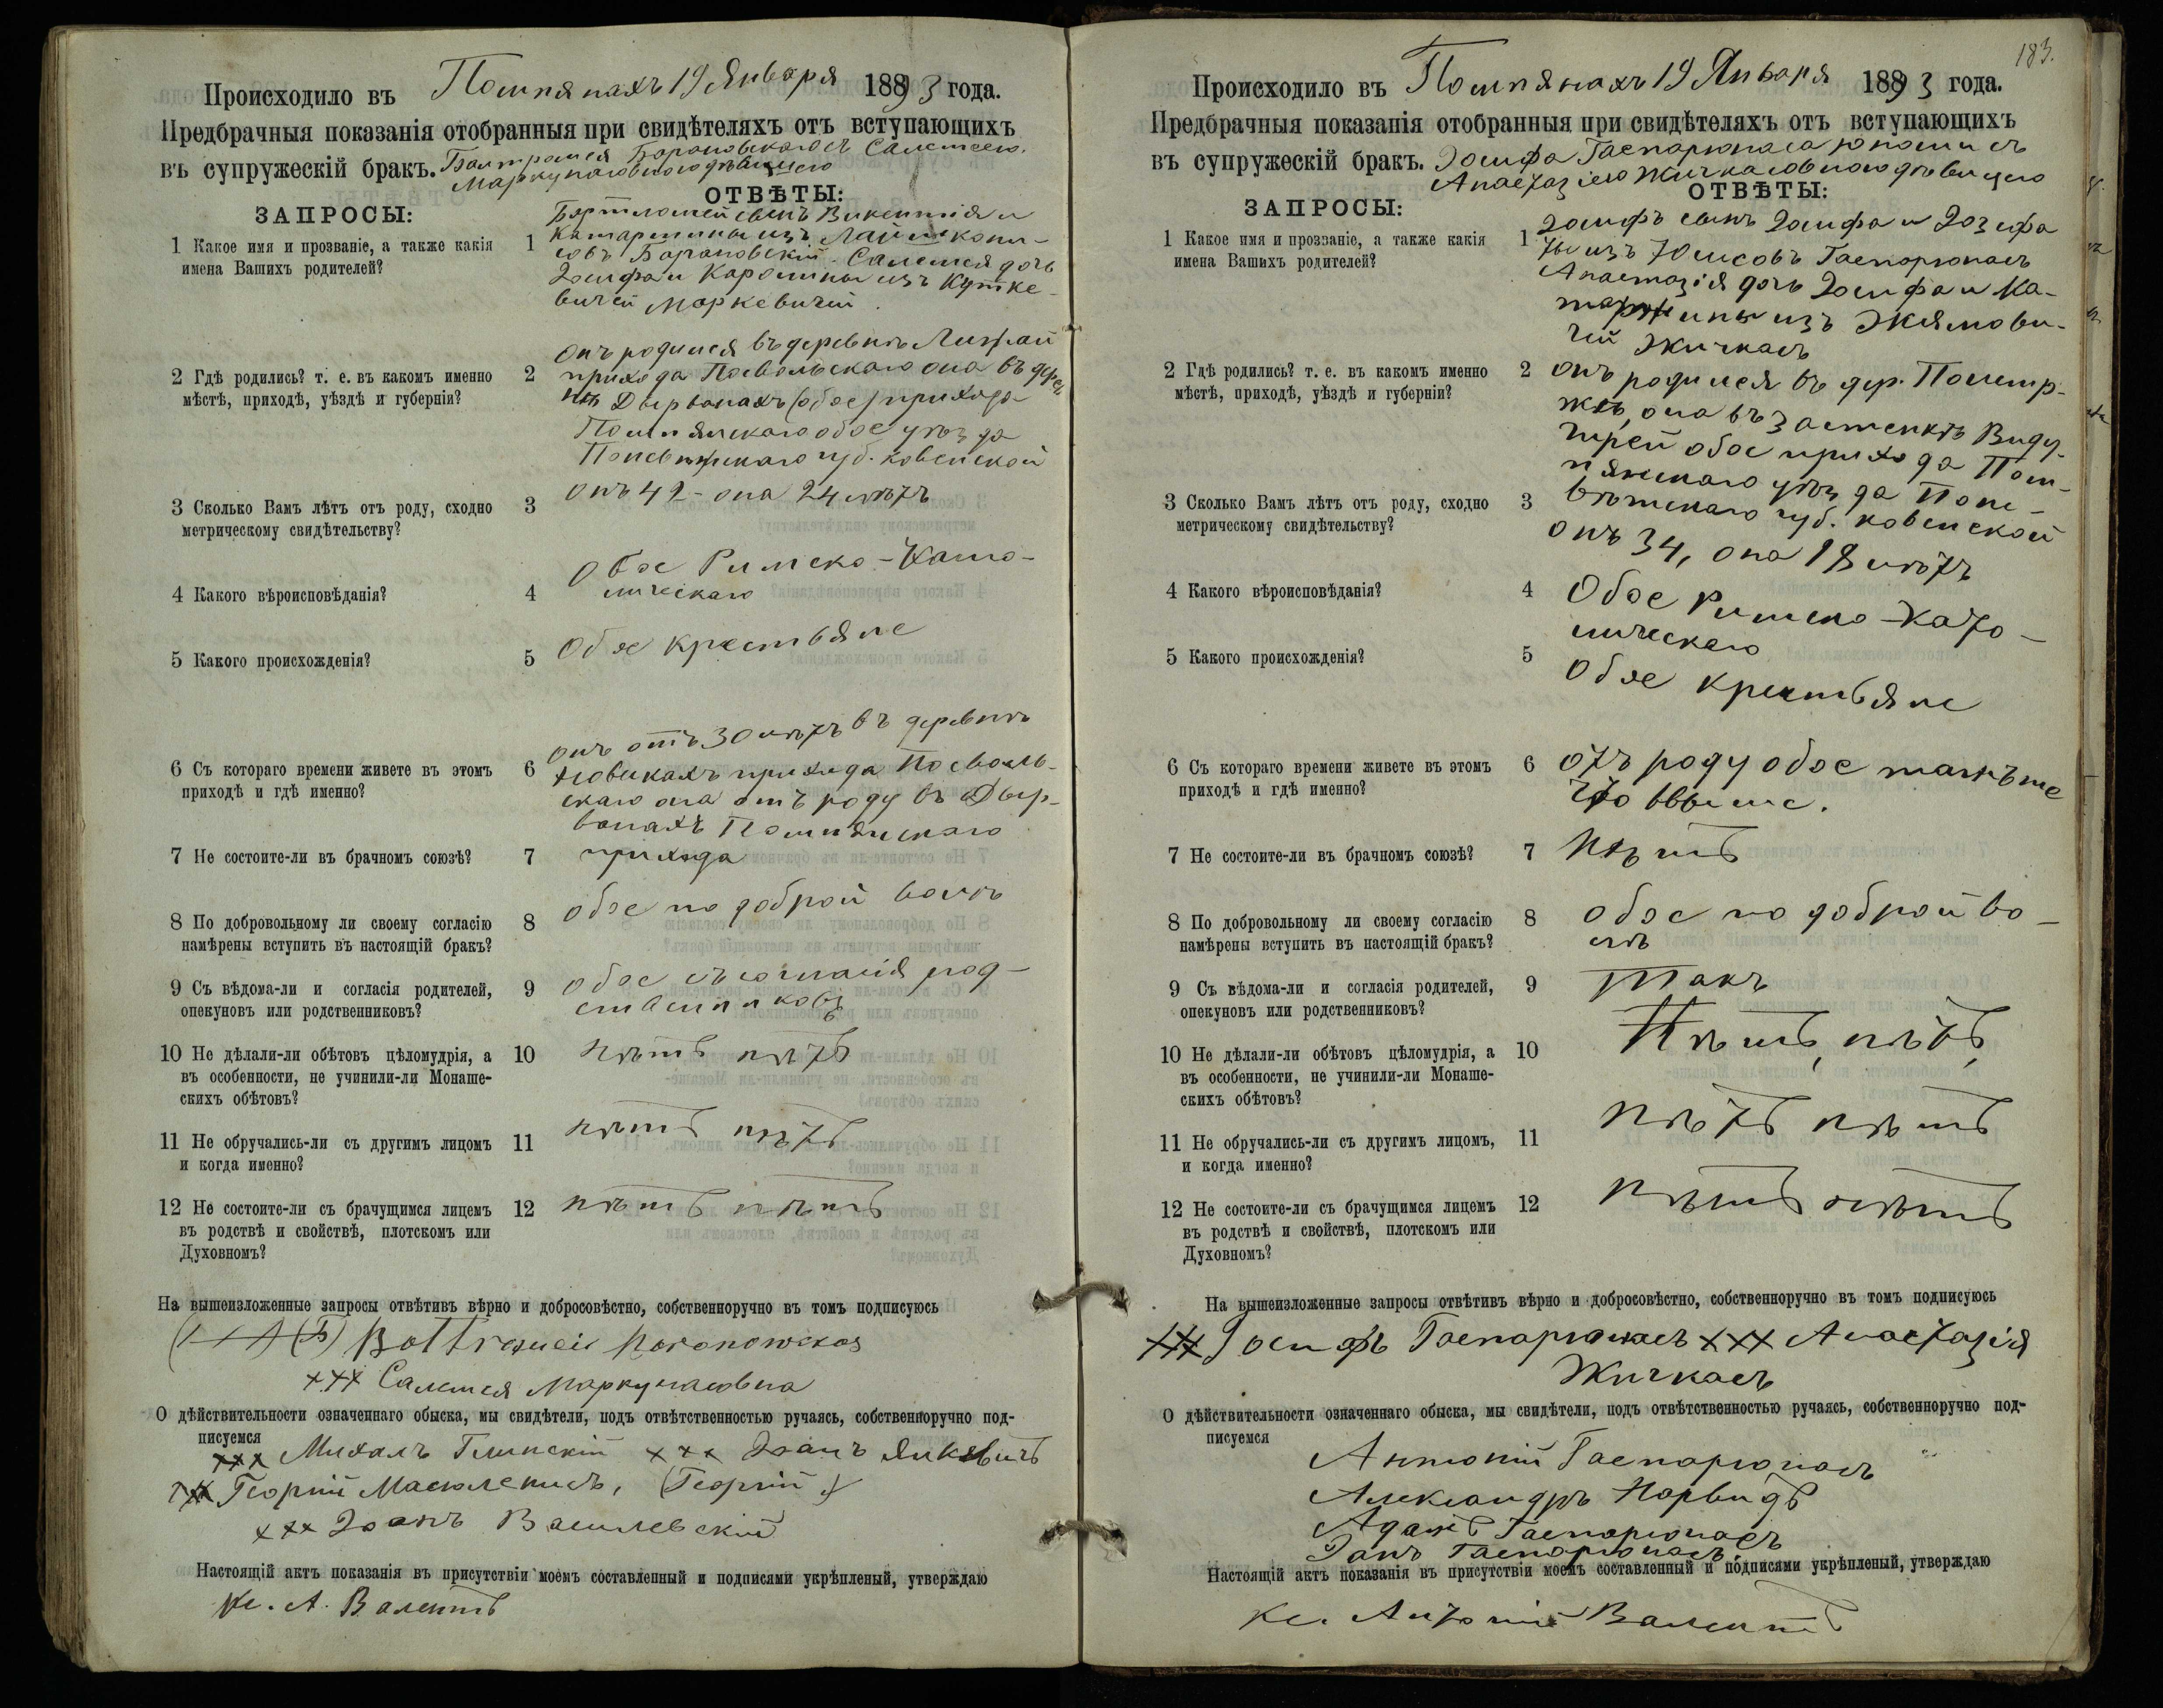 Происходило въ Помпянахъ 19 Января 1893 года.
Предбрачныя показанія отобранныя при свидѣтеляхъ отъ вступающихъ
въ супружескій бракъ. Балтромея Барановскаго съ Саломеею
Маркунасовною дѣвицею
ЗАПРОСЫ:
ОТВѢТЫ:
1 Какое имя и прозваніе, а также какія
имена Вашихъ родителей?
1 Бартломей сынъ Викентія и
Катаржины изъ
Барановскій. Саломея дочь
Іосифа и Каролины изъ Кутке-
вичей Маркевичей
2 Гдѣ родились? т. е. въ какомъ именно
мѣстѣ, приходѣ, уѣздѣ и губерніи?
2 онъ родился въ деревнѣ
прихода Посвольскаго она въ дерев
нѣ Дырванахъ (обое) прихода
Помпянскаго обое уѣзда
Поневѣжскаго губ. ковенской
3 Сколько Вамъ лѣтъ отъ роду, сходно
метрическому свидѣтельству?
3 онъ 42 - она 24 лѣтъ
4 Какого вѣроисповѣданія?
4 Обое Римско-Като-
лическаго
5 Какого происхожденія?
5 Обое крестьяне
6 Съ котораго времени живете въ этомъ
приходѣ и гдѣ именно?
6 онъ отъ 30 лѣтъ въ деревнѣ
прихода Посволь-
скаго она отъ роду въ Дыр-
ванахъ Помпянскаго
прихода
7 Не состоите-ли въ брачномъ союзѣ?
7
8 По добровольному ли своему согласію
намѣрены вступить въ настоящій бракъ?
8 обое по доброй волѣ
9 Съ вѣдома-ли и согласія родителей,
опекуновъ или родственниковъ?
9 обое съ согласія род-
ственниковъ
10 Не дѣлали-ли обѣтовъ цѣломудрія, а
въ особенности, не учинили-ли Монаше-
скихъ обѣтовъ?
10 нѣтъ нѣтъ
11 Не обручались-ли съ другимъ лицомъ
и когда именно?
11 нѣтъ нѣтъ
12 Не состоите-ли съ брачущимся лицемъ
въ родствѣ и свойствѣ, плотскомъ или
Духовномъ?
12 нѣтъ нѣтъ
На вышеизложенные запросы отвѣтивъ вѣрно и добросовѣстно, собственноручно въ томъ подписуюсь
(Б)
+++ Саломея Маркунасовна
О дѣйствительности означеннаго обыска, мы свидѣтели, подъ отвѣтственностью ручаясь, собственноручно под-
писуемся
+++ Михалъ Глинскій +++ Іоанъ Янкевичъ
+++ Георгій (Георгій)
+++ Іоанъ Василевскій
Настоящій актъ показанія въ присутствіи моемъ составленный и подписями укрѣпленый, утверждаю
Кс. А. Валентъ
183.
Происходило въ Помпянахъ 19 Января 1893 года.
Предбрачныя показанія отобранныя при свидѣтеляхъ отъ вступающихъ
въ супружескій бракъ. Іосифа Гаспарюнаса юноши съ
Анастазіею Жичкасовною дѣвицею
ЗАПРОСЫ:
ОТВѢТЫ:
1 Какое имя и прозваніе, а также какія
имена Вашихъ родителей?
1 Іосифъ сынъ Іосифа и Іозефа
ты изъ Юшсовъ Гаспарюнасъ
Анастазія дочь Іосифа и Ка-
таржины изъ Экямови-
чей Жичкасъ
2 Гдѣ родились? т. е. въ какомъ именно
мѣстѣ, приходѣ, уѣздѣ и губерніи?
2 онъ родился въ дер.
она въ застенкѣ
обое прихода Пом-
пянскаго уѣзда Поне-
вѣжскаго губ. ковенской
3 Сколько Вамъ лѣтъ отъ роду, сходно
метрическому свидѣтельству?
3 онъ 34, она 18 лѣтъ
4 Какого вѣроисповѣданія?
4 Обое Римско-Като-
лическаго
5 Какого происхожденія?
5 Обое крестьяне
6 Съ котораго времени живете въ этомъ
приходѣ и гдѣ именно?
6 отъ роду обое тамъ же
что ввыше.
7 Не состоите-ли въ брачномъ союзѣ?
7 Нѣтъ
8 По добровольному ли своему согласію
намѣрены вступить въ настоящій бракъ?
8 обое по доброй во-
лѣ
9 Съ вѣдома-ли и согласія родителей,
опекуновъ или родственниковъ?
9 Такъ
10 Не дѣлали-ли обѣтовъ цѣломудрія, а
въ особенности, не учинили-ли Монаше-
скихъ обѣтовъ?
10 Нѣтъ, нѣтъ
11 Не обручались-ли съ другимъ лицомъ,
и когда именно?
11 нѣтъ нѣтъ
12 Не состоите-ли съ брачущимся лицемъ
въ родствѣ и свойствѣ, плотскомъ или
Духовномъ?
12 нѣтъ нѣтъ
На вышеизложенные запросы отвѣтивъ вѣрно и добросовѣстно, собственноручно въ томъ подписуюсь
+++ Іосифъ Гаспарюнасъ +++ Анастазія
Жичкасъ
О дѣйствительности означеннаго обыска, мы свидѣтели, подъ отвѣтственностью ручаясь, собственноручно под-
писуемся
Антоній Гаспарюнасъ
Александръ Норвидъ
Адамъ Гаспарюнасъ
Іанъ Гаспарюнасъ
Настоящій актъ показанія въ присутствіи моемъ составленный и подписями укрѣпленый, утверждаю
Кс. Антоній Валентъ